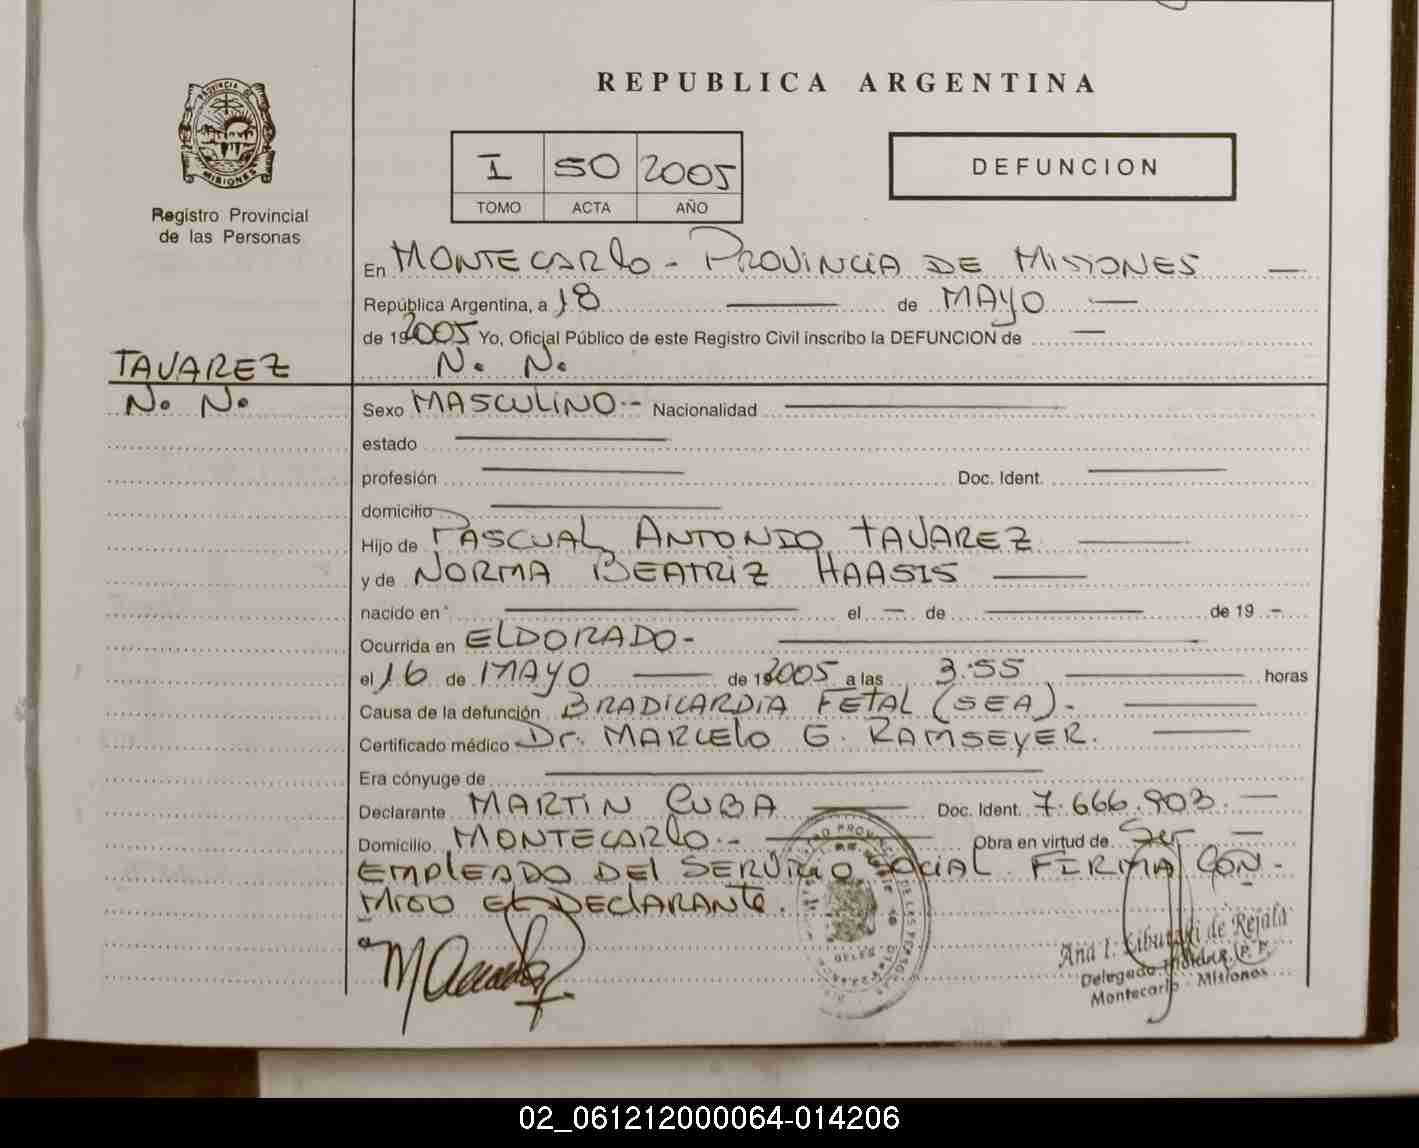 REPUBLICA ARGENTINA
PROVINCIA DE
MISIONES
I 50 2005
TOMO ACTA AÑO
DEFUNCION
Registro Provincial
de las Personas
En MONTECARLO - PROVINCIA DE MISIONES —
República Argentina, a 18 — de MAYO —
de 19 2005 Yo, Oficial Público de este Registro Civil inscribo la DEFUNCION de —
TAVAREZ N. N.
N. N. Sexo MASCULINO -- Nacionalidad —
estado —
profesión — Doc. Ident. —
domicilio —
Hijo de PASCUAL ANTONIO TAVAREZ —
y de NORMA BEATRIZ HAASIS —
nacido en — el — de — de 19 -
Ocurrida en ELDORADO- —
el 16 de MAYO — de 19 2005 a las 3.55 — horas
Causa de la defunción BRADICARDIA FETAL (SEA). —
Certificado médico Dr. MARCELO G. RAMSEYER. —
Era cónyuge de —
Declarante MARTIN CUBA — Doc. Ident. 7.666.903. —
Domicilio MONTECARLO.- — Obra en virtud de Ser —
EMPLEADO DEL SERVICIO SOCIAL. FIRMA CON-
MIGO EL DECLARANTE.
Ana I. de Rejala
Delegada
Montecarlo - Misiones
02_061212000064-014206